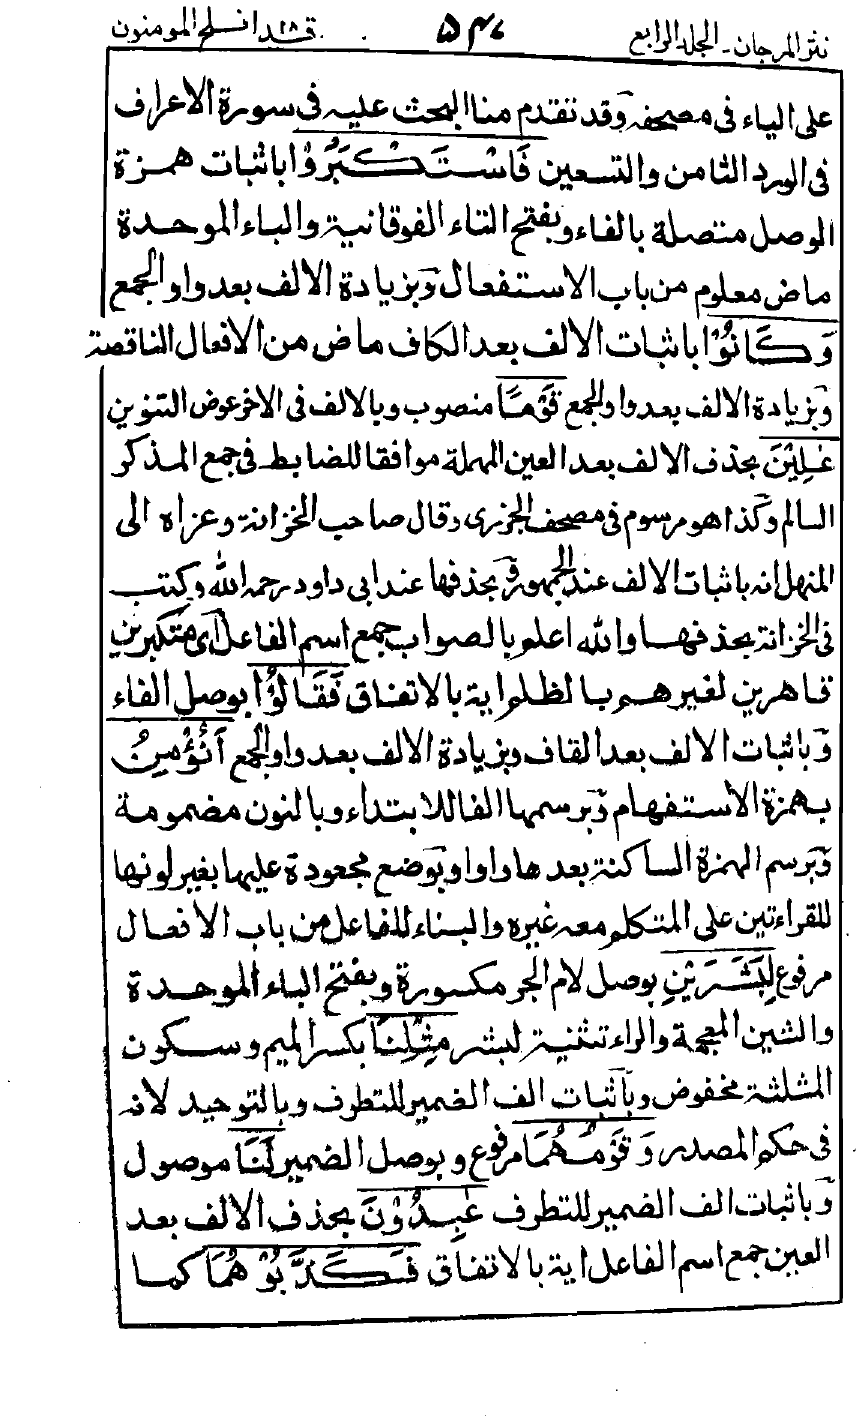 نثر المرجان ـ الجلد الرابع ٥٤٧ قد افلح ١٨ المومنون
على الياء فى مصحفه وقد تقدم منا البحث عليه فى سورة الاعراف
فى الورد الثامن والتسعين فَاسْتَكْبَرُوْا باثبات همزة
الوصل متصلة بالفاء وبفتح التاء الفوقانية والباء الموحدة
ماض معلوم من باب الاستفعال وبزيادة الالف بعد واو الجمع
وَكَانُوْا باثبات الالف بعد الكاف ماض من الافعال الناقصة
وبزيادة الالف بعد واو الجمع قَوْمًا منصوب وبالالف فى الاخر عوض التنوين
عٰلِيْنَ بحذف الالف بعد العين المهملة موافقا للضابط فى جمع المذكر
السالم وكذا هو مرسوم فى مصحف الجزرى وقال صاحب الخزانة وعزاه الى
المنهل انه باثبات الالف عند الجمهور وبحذفها عند ابى داود رحمه الله وكتب
فى الخزانة بحذفها والله اعلم بالصواب جمع اسم الفاعل اى متكبرين
قاهرين لغيرهم بالظلم اية بالاتفاق فَقَالُوْا بوصل الفاء
وباثبات الالف بعد القاف وبزيادة الالف بعد واو الجمع اَنُؤْمِنُ
بهمزة الاستفهام وبرسمها الفا للابتداء وبالنون مضمومة
وبرسم الهمزة الساكنة بعدها واوا وبوضع مجعودة عليها بغير لونها
للقراءتين على المتكلم معه غيره والبناء للفاعل من باب الافعال
مرفوع لِبَشَرَيْنِ بوصل لام الجر مكسورة وبفتح الباء الموحدة
والشين المعجمة والراء تثنية لبشر مِثْلِنَا بكسر الميم وسكون
المثلثة مخفوض وباثبات الف الضمير للتطرف وبالتوحيد لانه
فى حكم المصدر وَقَوْمُهُمَا مرفوع وبوصل الضمير لَنَا موصول
وباثبات الف الضمير للتطرف عٰبِدُوْنَ بحذف الالف بعد
العين جمع اسم الفاعل اية بالاتفاق فَكَذَّبُوْهُمَا كما